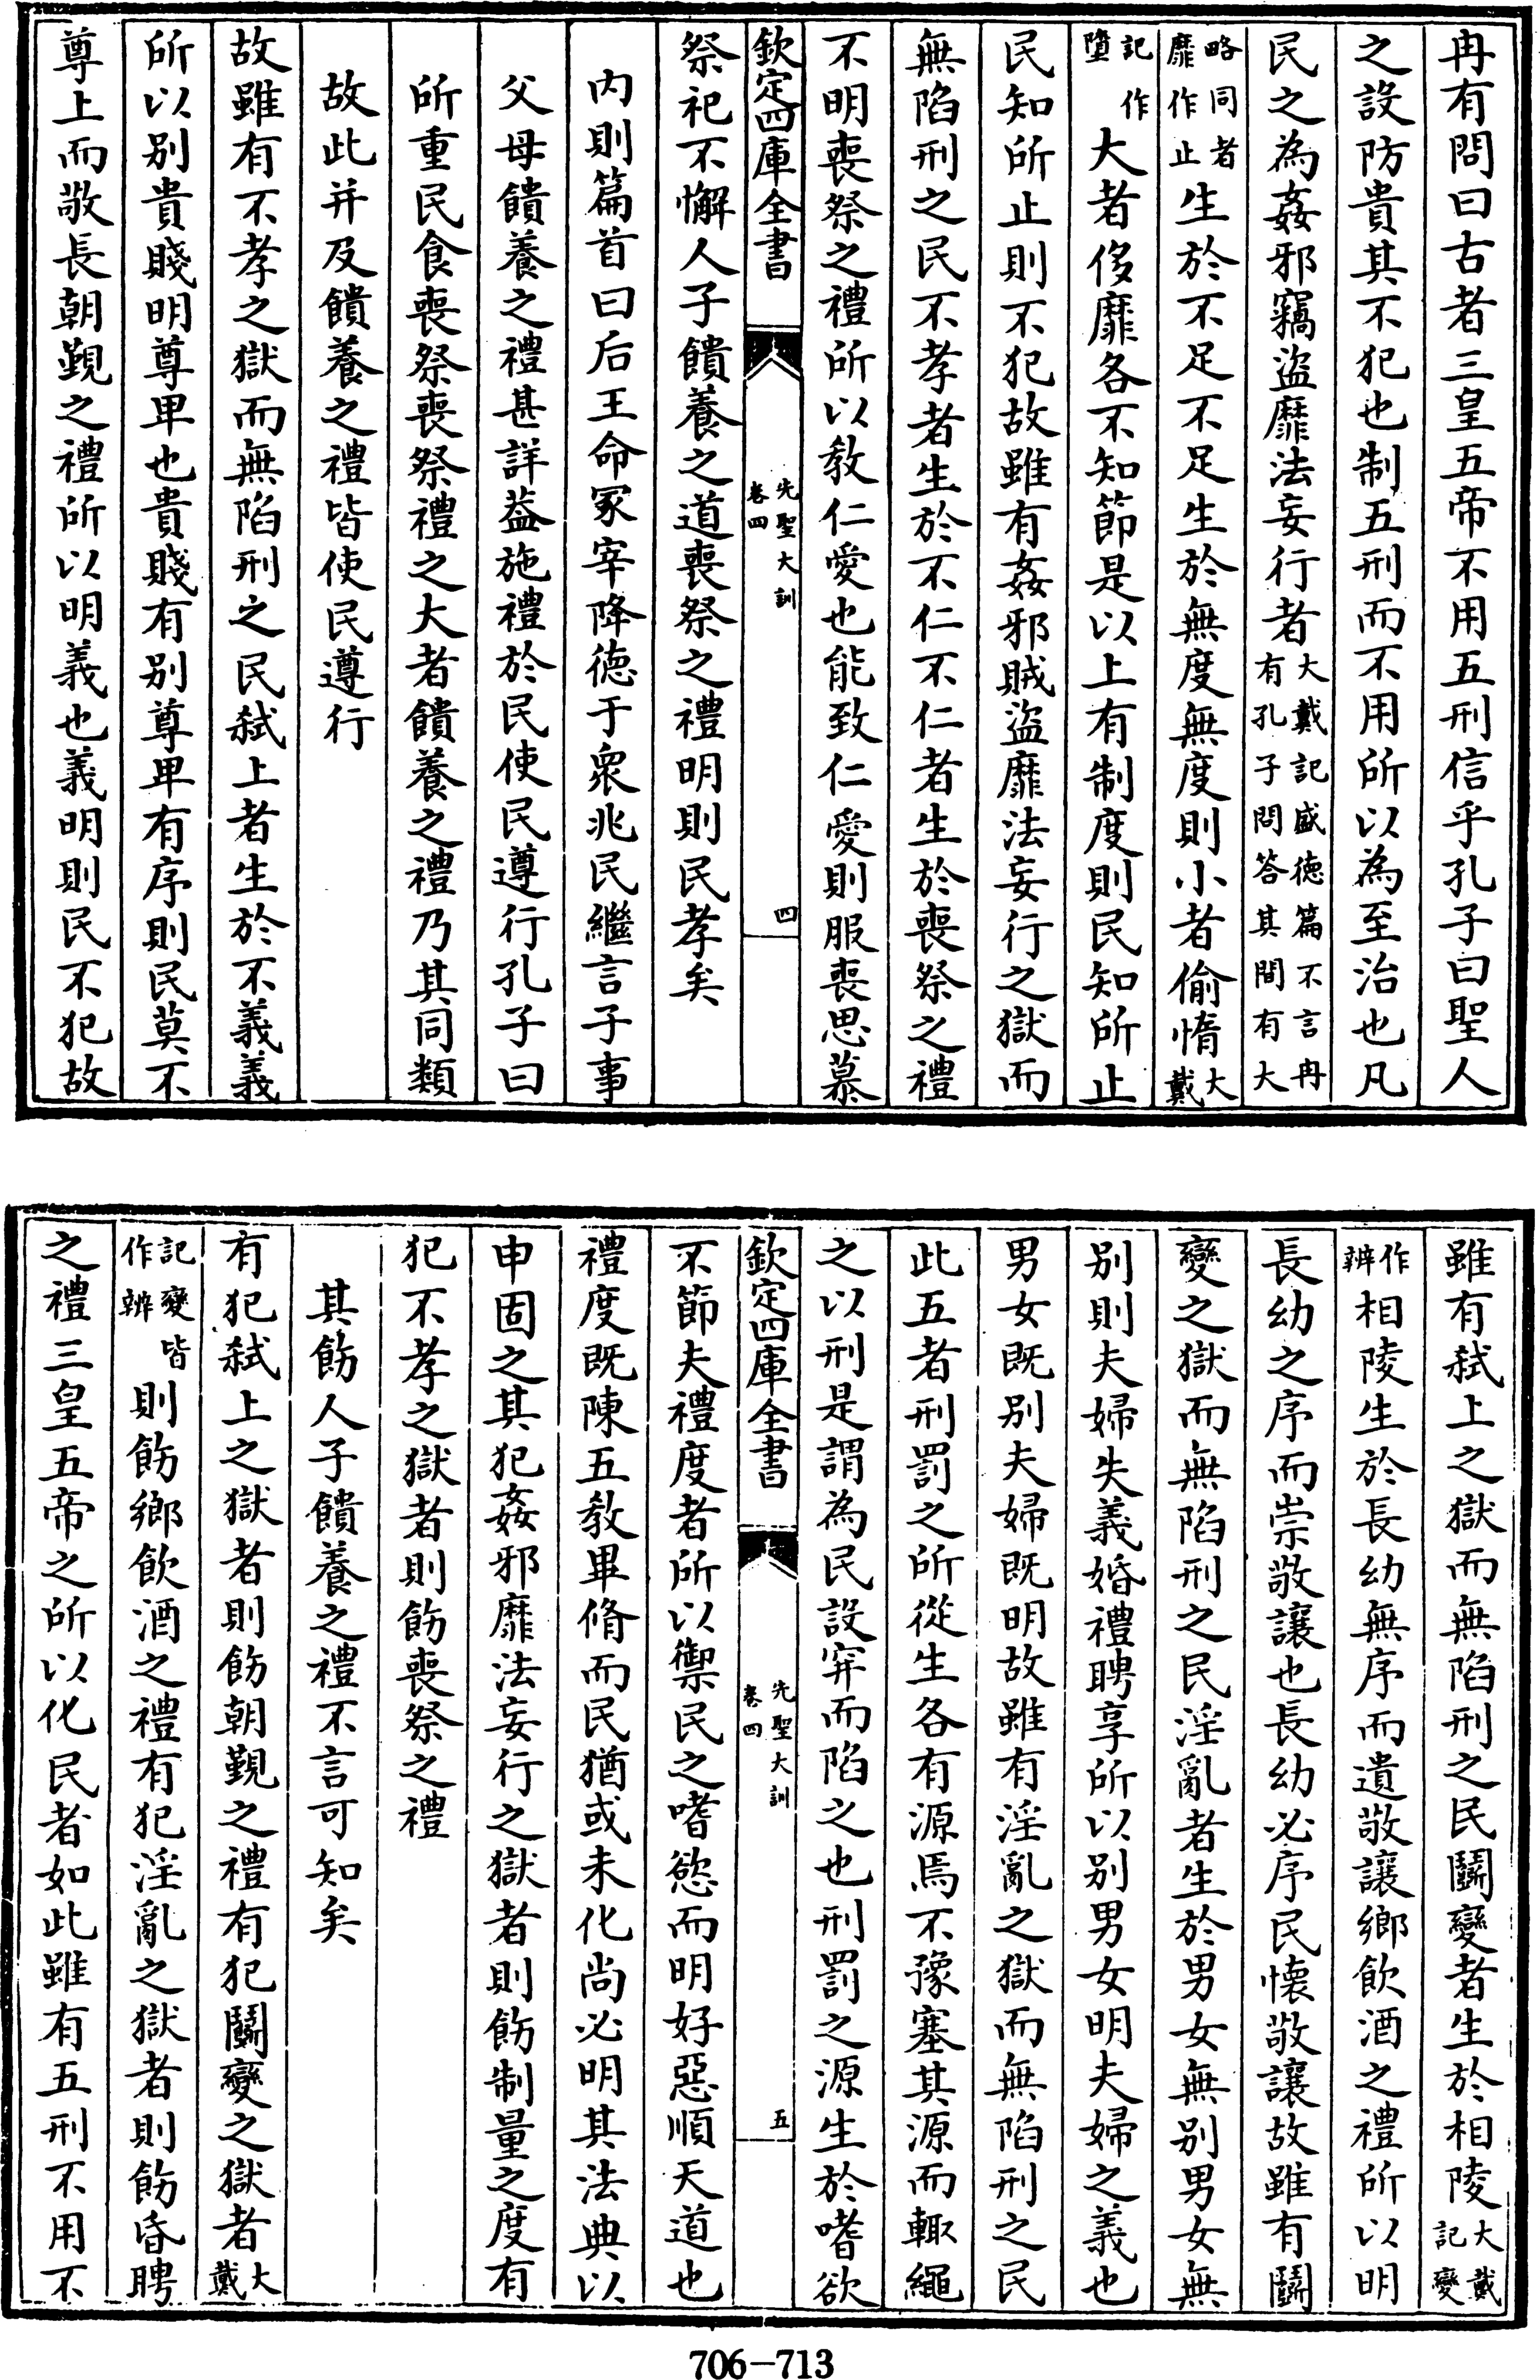 冉有問曰古者三皇五帝不用五刑信乎孔子曰聖人
之設防貴其不犯也制五刑而不用所以為至治也凡
民之為姦邪竊盜靡法妄行者大戴記盛德篇不言冉有孔子問答其間有大
略同者靡作止生於不足不足生於無度無度則小者偷惰大戴
記作墮大者侈靡各不知節是以上有制度則民知所止
民知所止則不犯故雖有姦邪賊盜靡法妄行之獄而
無陷刑之民不孝者生於不仁不仁者生於喪祭之禮
不明喪祭之禮所以教仁愛也能致仁愛則服喪思慕
欽定四庫全書 先聖大訓 卷四 四
祭祀不懈人子饋養之道喪祭之禮明則民孝矣
內則篇首曰后王命冢宰降德于衆兆民繼言子事
父母饋養之禮甚詳葢施禮於民使民遵行孔子曰
所重民食喪祭喪祭禮之大者饋養之禮乃其同類
故此并及饋養之禮皆使民遵行
故雖有不孝之獄而無陷刑之民弑上者生於不義義
所以别貴賤明尊卑也貴賤有别尊卑有序則民莫不
尊上而敬長朝覲之禮所以明義也義明則民不犯故
雖有弑上之獄而無陷刑之民鬭變者生於相陵大戴記變
作辨相陵生於長幼無序而遺敬讓鄉飲酒之禮所以明
長幼之序而崇敬讓也長幼必序民懷敬讓故雖有鬭
變之獄而無陷刑之民淫亂者生於男女無别男女無
别則夫婦失義婚禮聘享所以别男女明夫婦之義也
男女既别夫婦既明故雖有淫亂之獄而無陷刑之民
此五者刑罰之所從生各有源焉不豫塞其源而輒繩
之以刑是謂為民設穽而陷之也刑罰之源生於嗜欲
欽定四庫全書 先聖大訓 卷四 五
不節夫禮度者所以禦民之嗜慾而明好惡順天道也
禮度既陳五教畢脩而民猶或未化尚必明其法典以
申固之其犯姦邪靡法妄行之獄者則飭制量之度有
犯不孝之獄者則飭喪祭之禮
其飭人子饋養之禮不言可知矣
有犯弑上之獄者則飭朝覲之禮有犯鬭變之獄者大戴
記變皆作辨則飭鄉飲酒之禮有犯淫亂之獄者則飭昏聘
之禮三皇五帝之所以化民者如此雖有五刑不用不
706-713